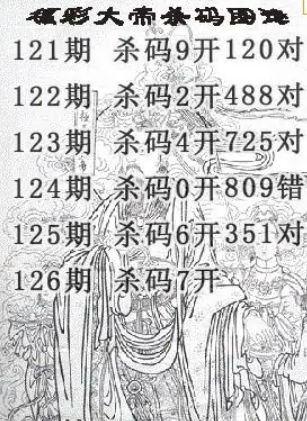 福彩大帝杀码图迷
121期 杀码9开120对
122期 杀码2开488对
123期 杀码4开725对
124期 杀码0开809错
125期 杀码6开351对
126期 杀码7开